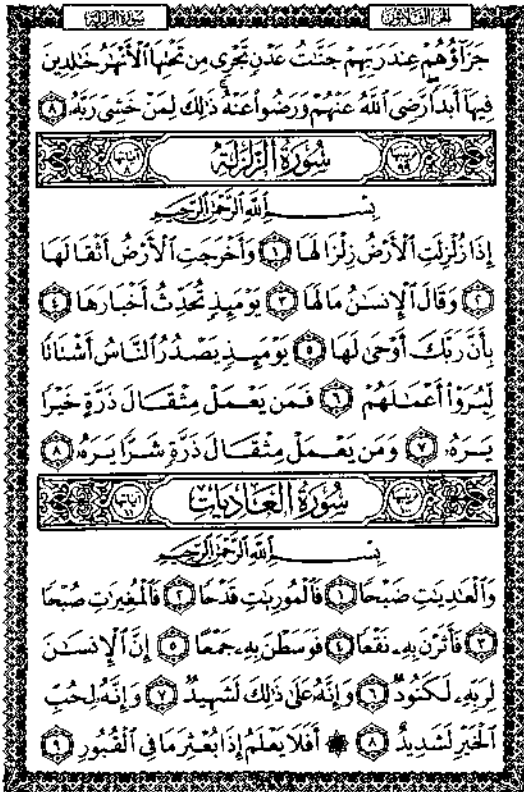 سُورَةُ الزَّلْزَلَةِ الجُزْءُ الثَّلَاثُونَ
جَزَآؤُهُمْ عِندَ رَبِّهِمْ جَنَّٰتُ عَدْنٍ تَجْرِى مِن تَحْتِهَا ٱلْأَنْهَٰرُ خَٰلِدِينَ
فِيهَآ أَبَدًا رَّضِىَ ٱللَّهُ عَنْهُمْ وَرَضُوا۟ عَنْهُ ذَٰلِكَ لِمَنْ خَشِىَ رَبَّهُۥ ٨
ترتيبها ٩٩ سُورَةُ الزَّلْزَلَةِ آياتها ٨
بِسْمِ ٱللَّهِ ٱلرَّحْمَٰنِ ٱلرَّحِيمِ
إِذَا زُلْزِلَتِ ٱلْأَرْضُ زِلْزَالَهَا ١ وَأَخْرَجَتِ ٱلْأَرْضُ أَثْقَالَهَا
٢ وَقَالَ ٱلْإِنسَٰنُ مَا لَهَا ٣ يَوْمَئِذٍ تُحَدِّثُ أَخْبَارَهَا ٤
بِأَنَّ رَبَّكَ أَوْحَىٰ لَهَا ٥ يَوْمَئِذٍ يَصْدُرُ ٱلنَّاسُ أَشْتَاتًا
لِّيُرَوْا۟ أَعْمَٰلَهُمْ ٦ فَمَن يَعْمَلْ مِثْقَالَ ذَرَّةٍ خَيْرًا
يَرَهُۥ ٧ وَمَن يَعْمَلْ مِثْقَالَ ذَرَّةٍ شَرًّا يَرَهُۥ ٨
ترتيبها ١٠٠ سُورَةُ العَادِيَاتِ آياتها ١١
بِسْمِ ٱللَّهِ ٱلرَّحْمَٰنِ ٱلرَّحِيمِ
وَٱلْعَٰدِيَٰتِ ضَبْحًا ١ فَٱلْمُورِيَٰتِ قَدْحًا ٢ فَٱلْمُغِيرَٰتِ صُبْحًا
٣ فَأَثَرْنَ بِهِۦ نَقْعًا ٤ فَوَسَطْنَ بِهِۦ جَمْعًا ٥ إِنَّ ٱلْإِنسَٰنَ
لِرَبِّهِۦ لَكَنُودٌ ٦ وَإِنَّهُۥ عَلَىٰ ذَٰلِكَ لَشَهِيدٌ ٧ وَإِنَّهُۥ لِحُبِّ
ٱلْخَيْرِ لَشَدِيدٌ ٨ ۞ أَفَلَا يَعْلَمُ إِذَا بُعْثِرَ مَا فِى ٱلْقُبُورِ ٩